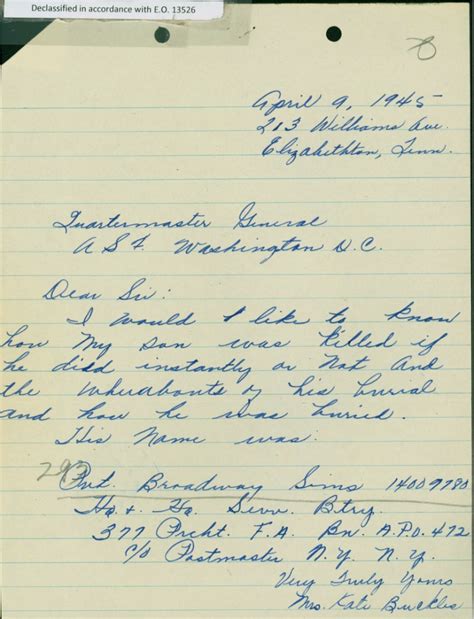 Declassified in accordance with E.O. 13526
8
April 9, 1945
213 Williams Ave.
Elizabethton, Tenn.
Quartermaster General
A S F. Washington D.C.
Dear Sir:
I would like to know
how My son was killed if
he didd instantly or Not And
the wherabouts of his burial
and how he was buried.
His Name was:
293
Pvt. Broadway Sims 14009780
Hq. & Hq. Serv. Btry.
377 Prcht. F.A. Bn. A.P.O. 472
c/o Postmaster N.Y. N.Y.
Very Truly Yours
Mrs. Kate Buckles